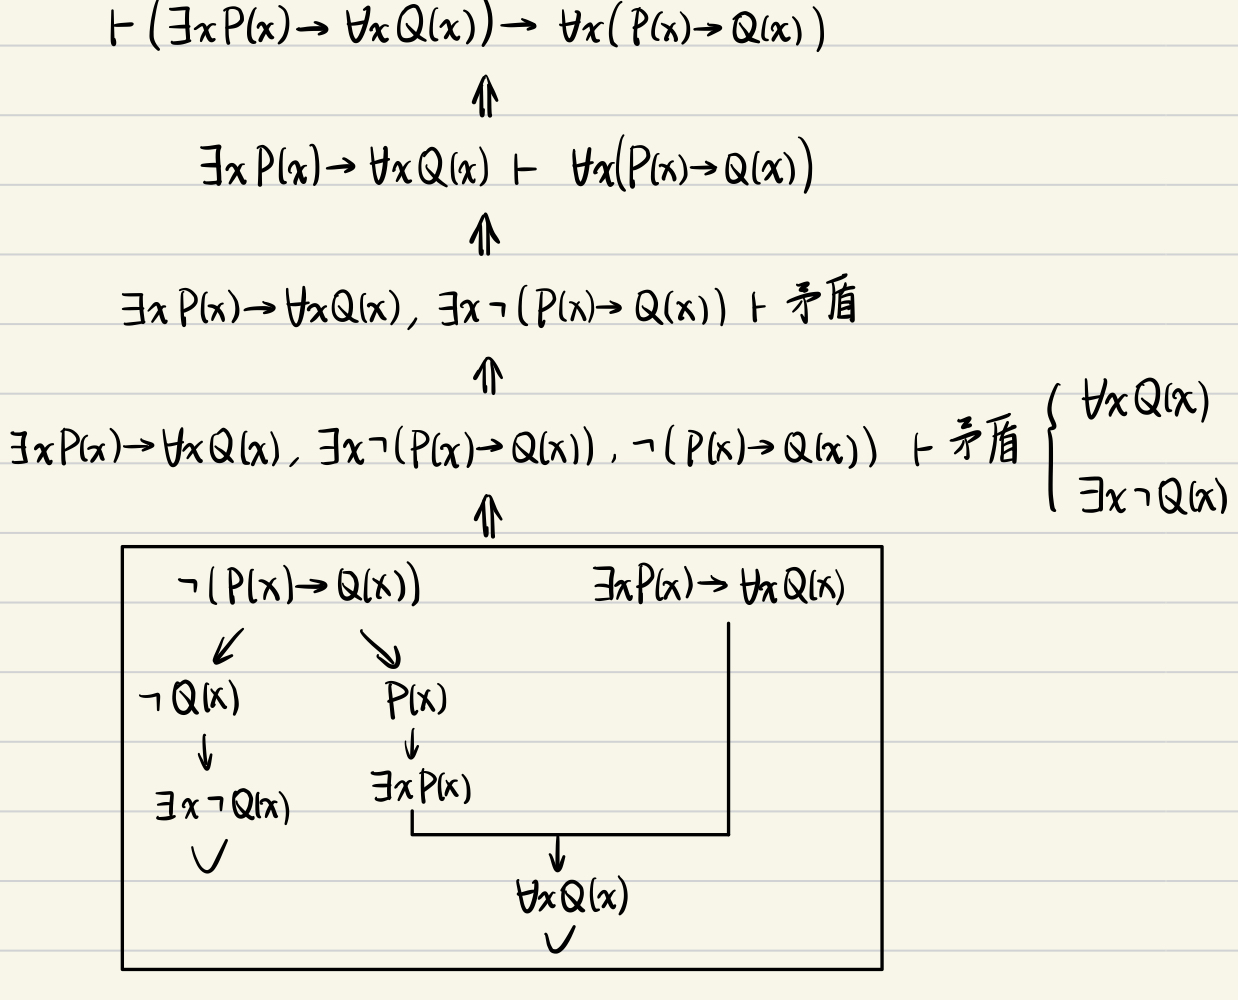 ⊢ (∃xP(x) → ∀xQ(x)) → ∀x(P(x) → Q(x))
⇑
∃xP(x) → ∀xQ(x) ⊢ ∀x(P(x) → Q(x))
⇑
∃xP(x) → ∀xQ(x), ∃x¬(P(x) → Q(x)) ⊢ 矛盾
⇑
∃xP(x) → ∀xQ(x), ∃x¬(P(x) → Q(x)), ¬(P(x) → Q(x)) ⊢ 矛盾 {
∀xQ(x)
∃x¬Q(x)
⇑
¬(P(x) → Q(x)) ∃xP(x) → ∀xQ(x)
↙ ↘
¬Q(x) P(x)
↓ ↓
∃x¬Q(x) ∃xP(x)
✓ ↓
∀xQ(x)
✓